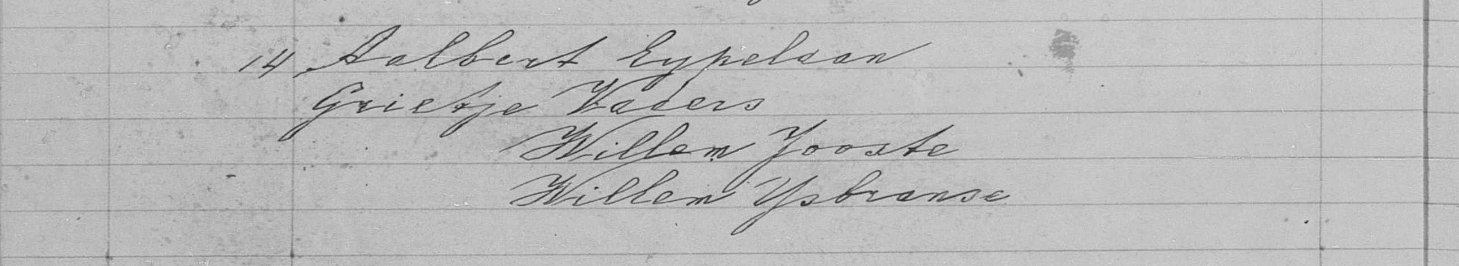 14 Aalbert Eypelaan
Grietje Vaders
Willem Jooste
Willem Ysbranse